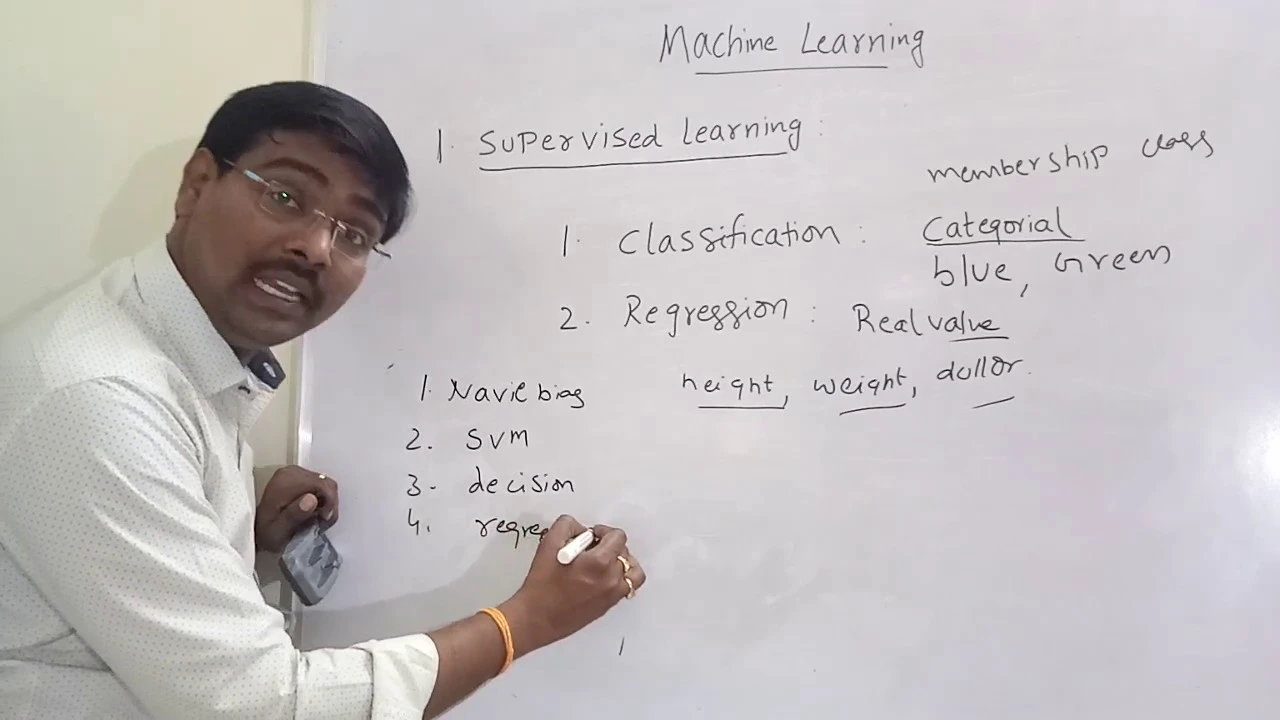 Machine Learning
1. Supervised Learning :
membership class
1. Classification : Categorial
blue, Green
2. Regression : Real value
height, weight, dollor.
1. Navie bias
2. SVM
3. decision
4. regre